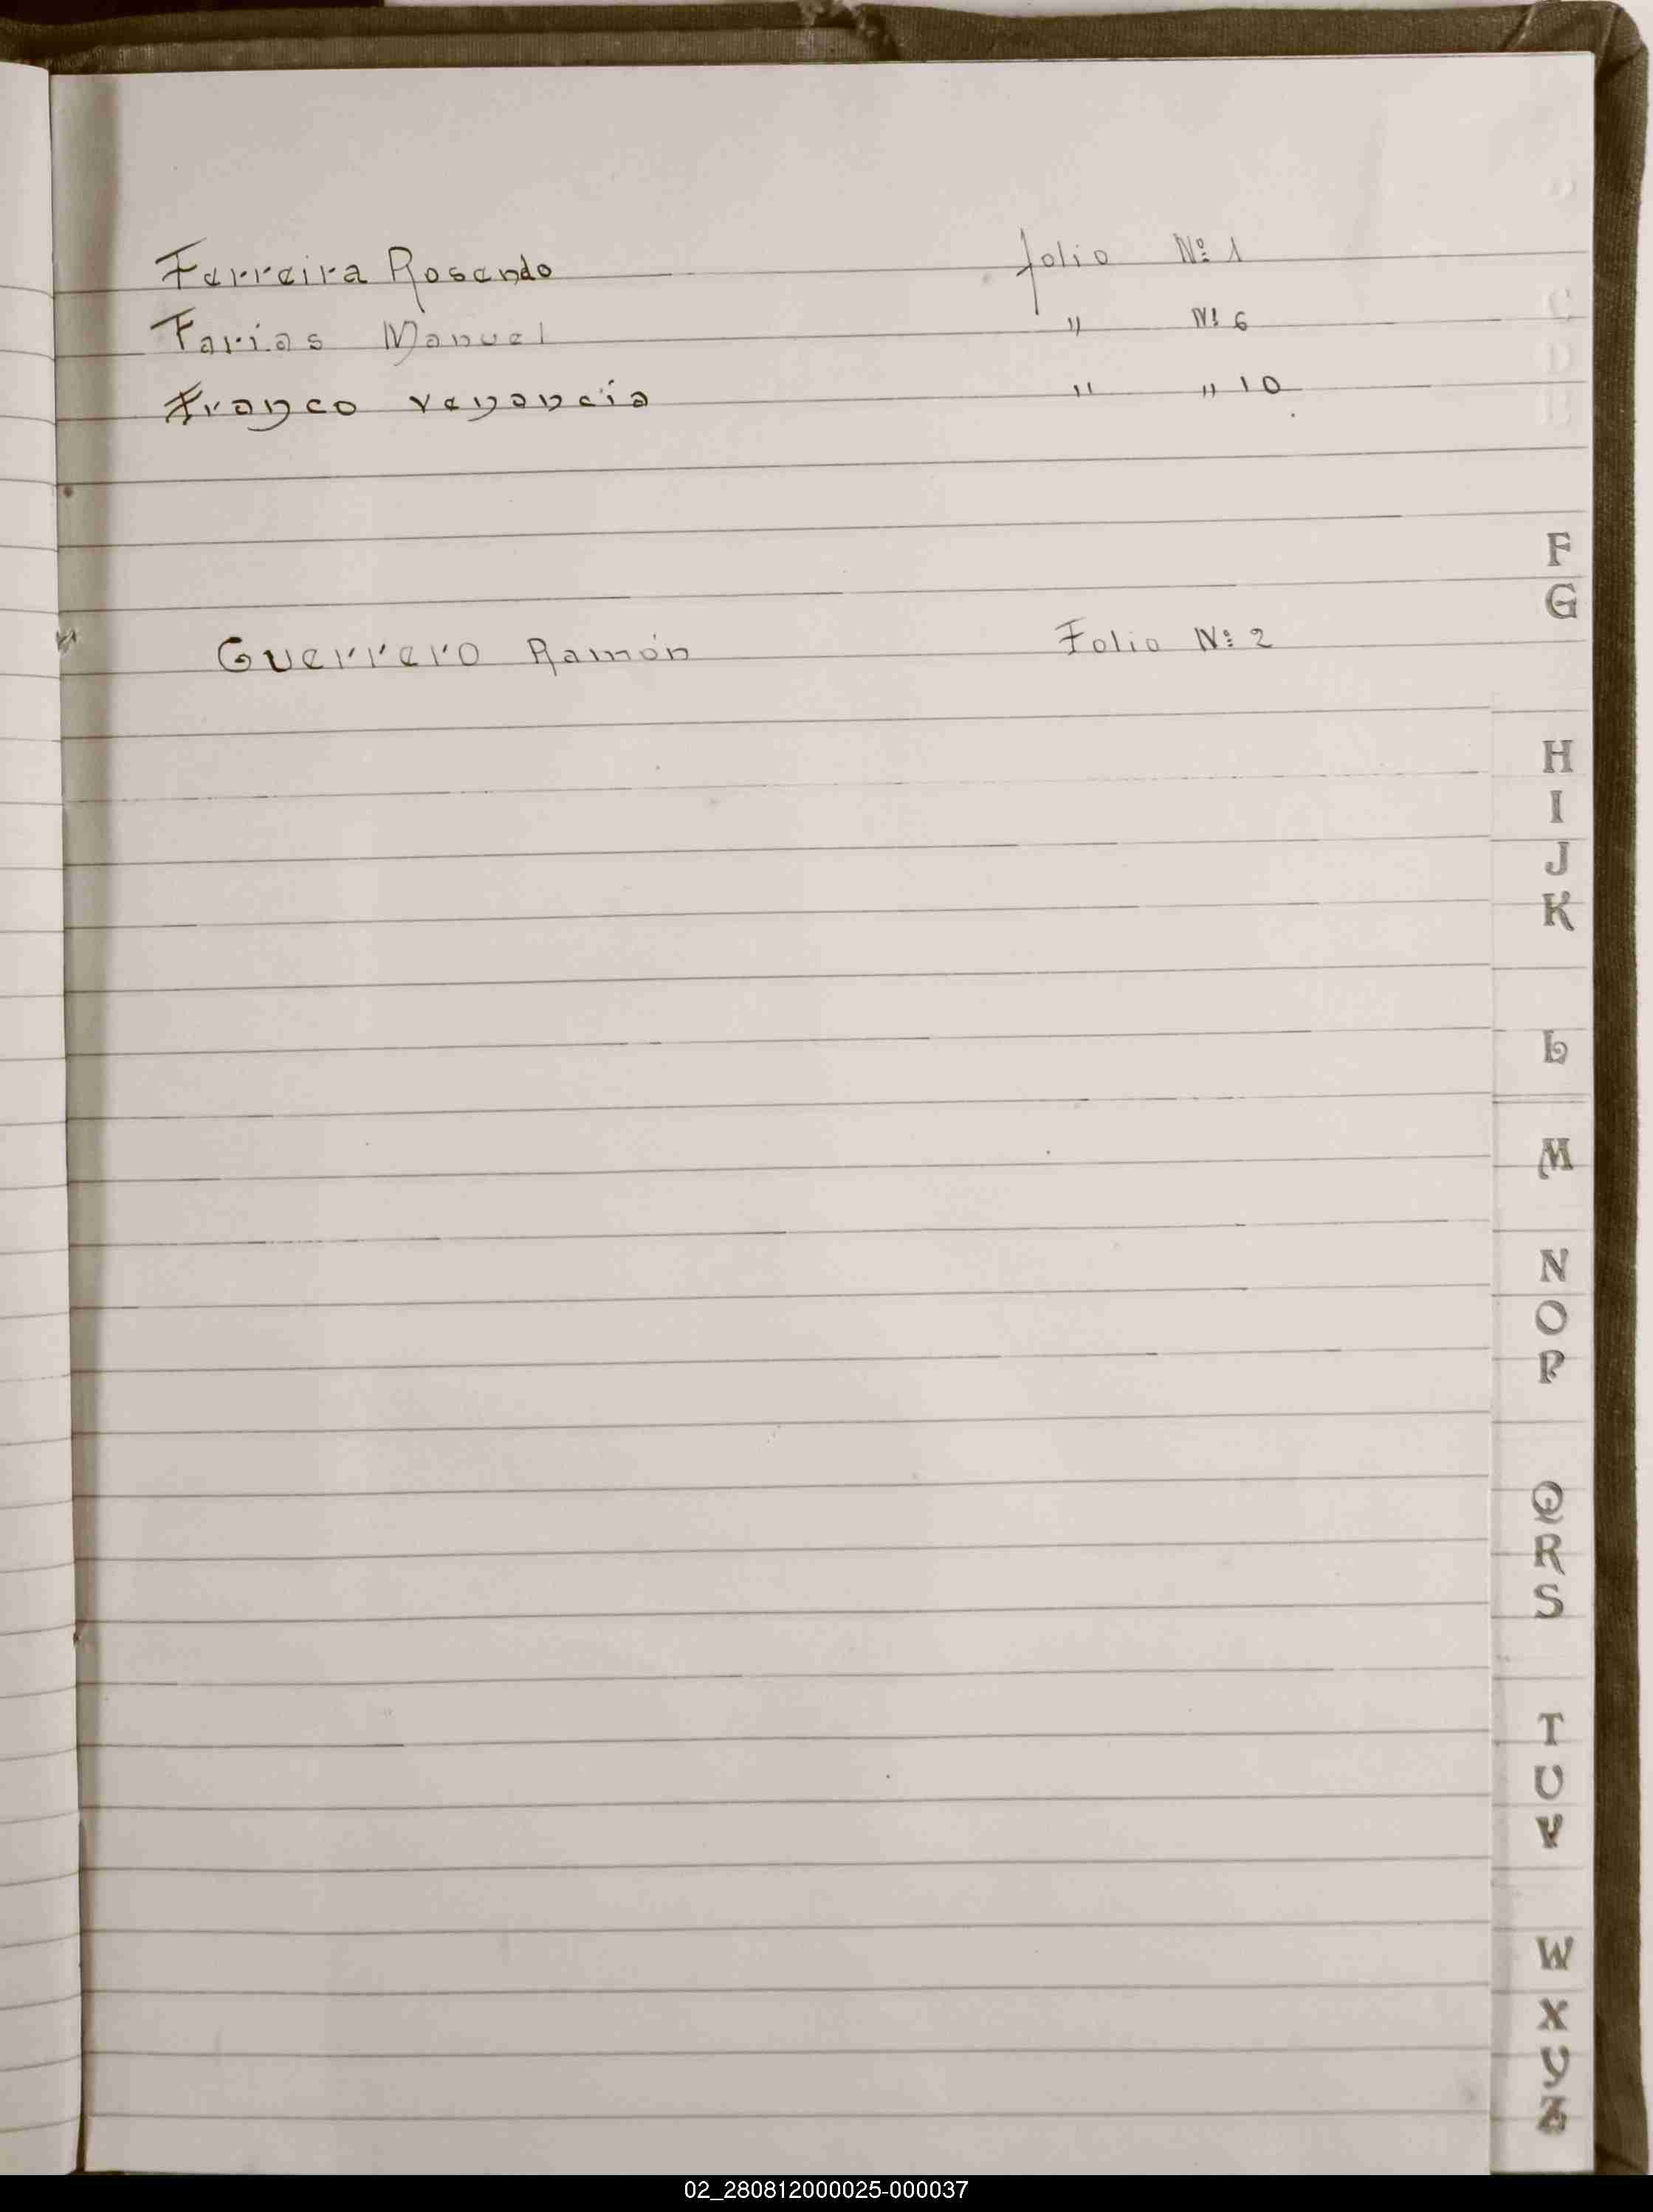 Ferreira Rosendo folio Nº 1
Farias Manuel " Nº 6
Franco venancia " " 10
F
G
Guerrero Ramón Folio Nº 2
H
I
J
K
L
M
N
O
P
Q
R
S
T
U
V
W
X
Y
Z
02_280812000025-000037